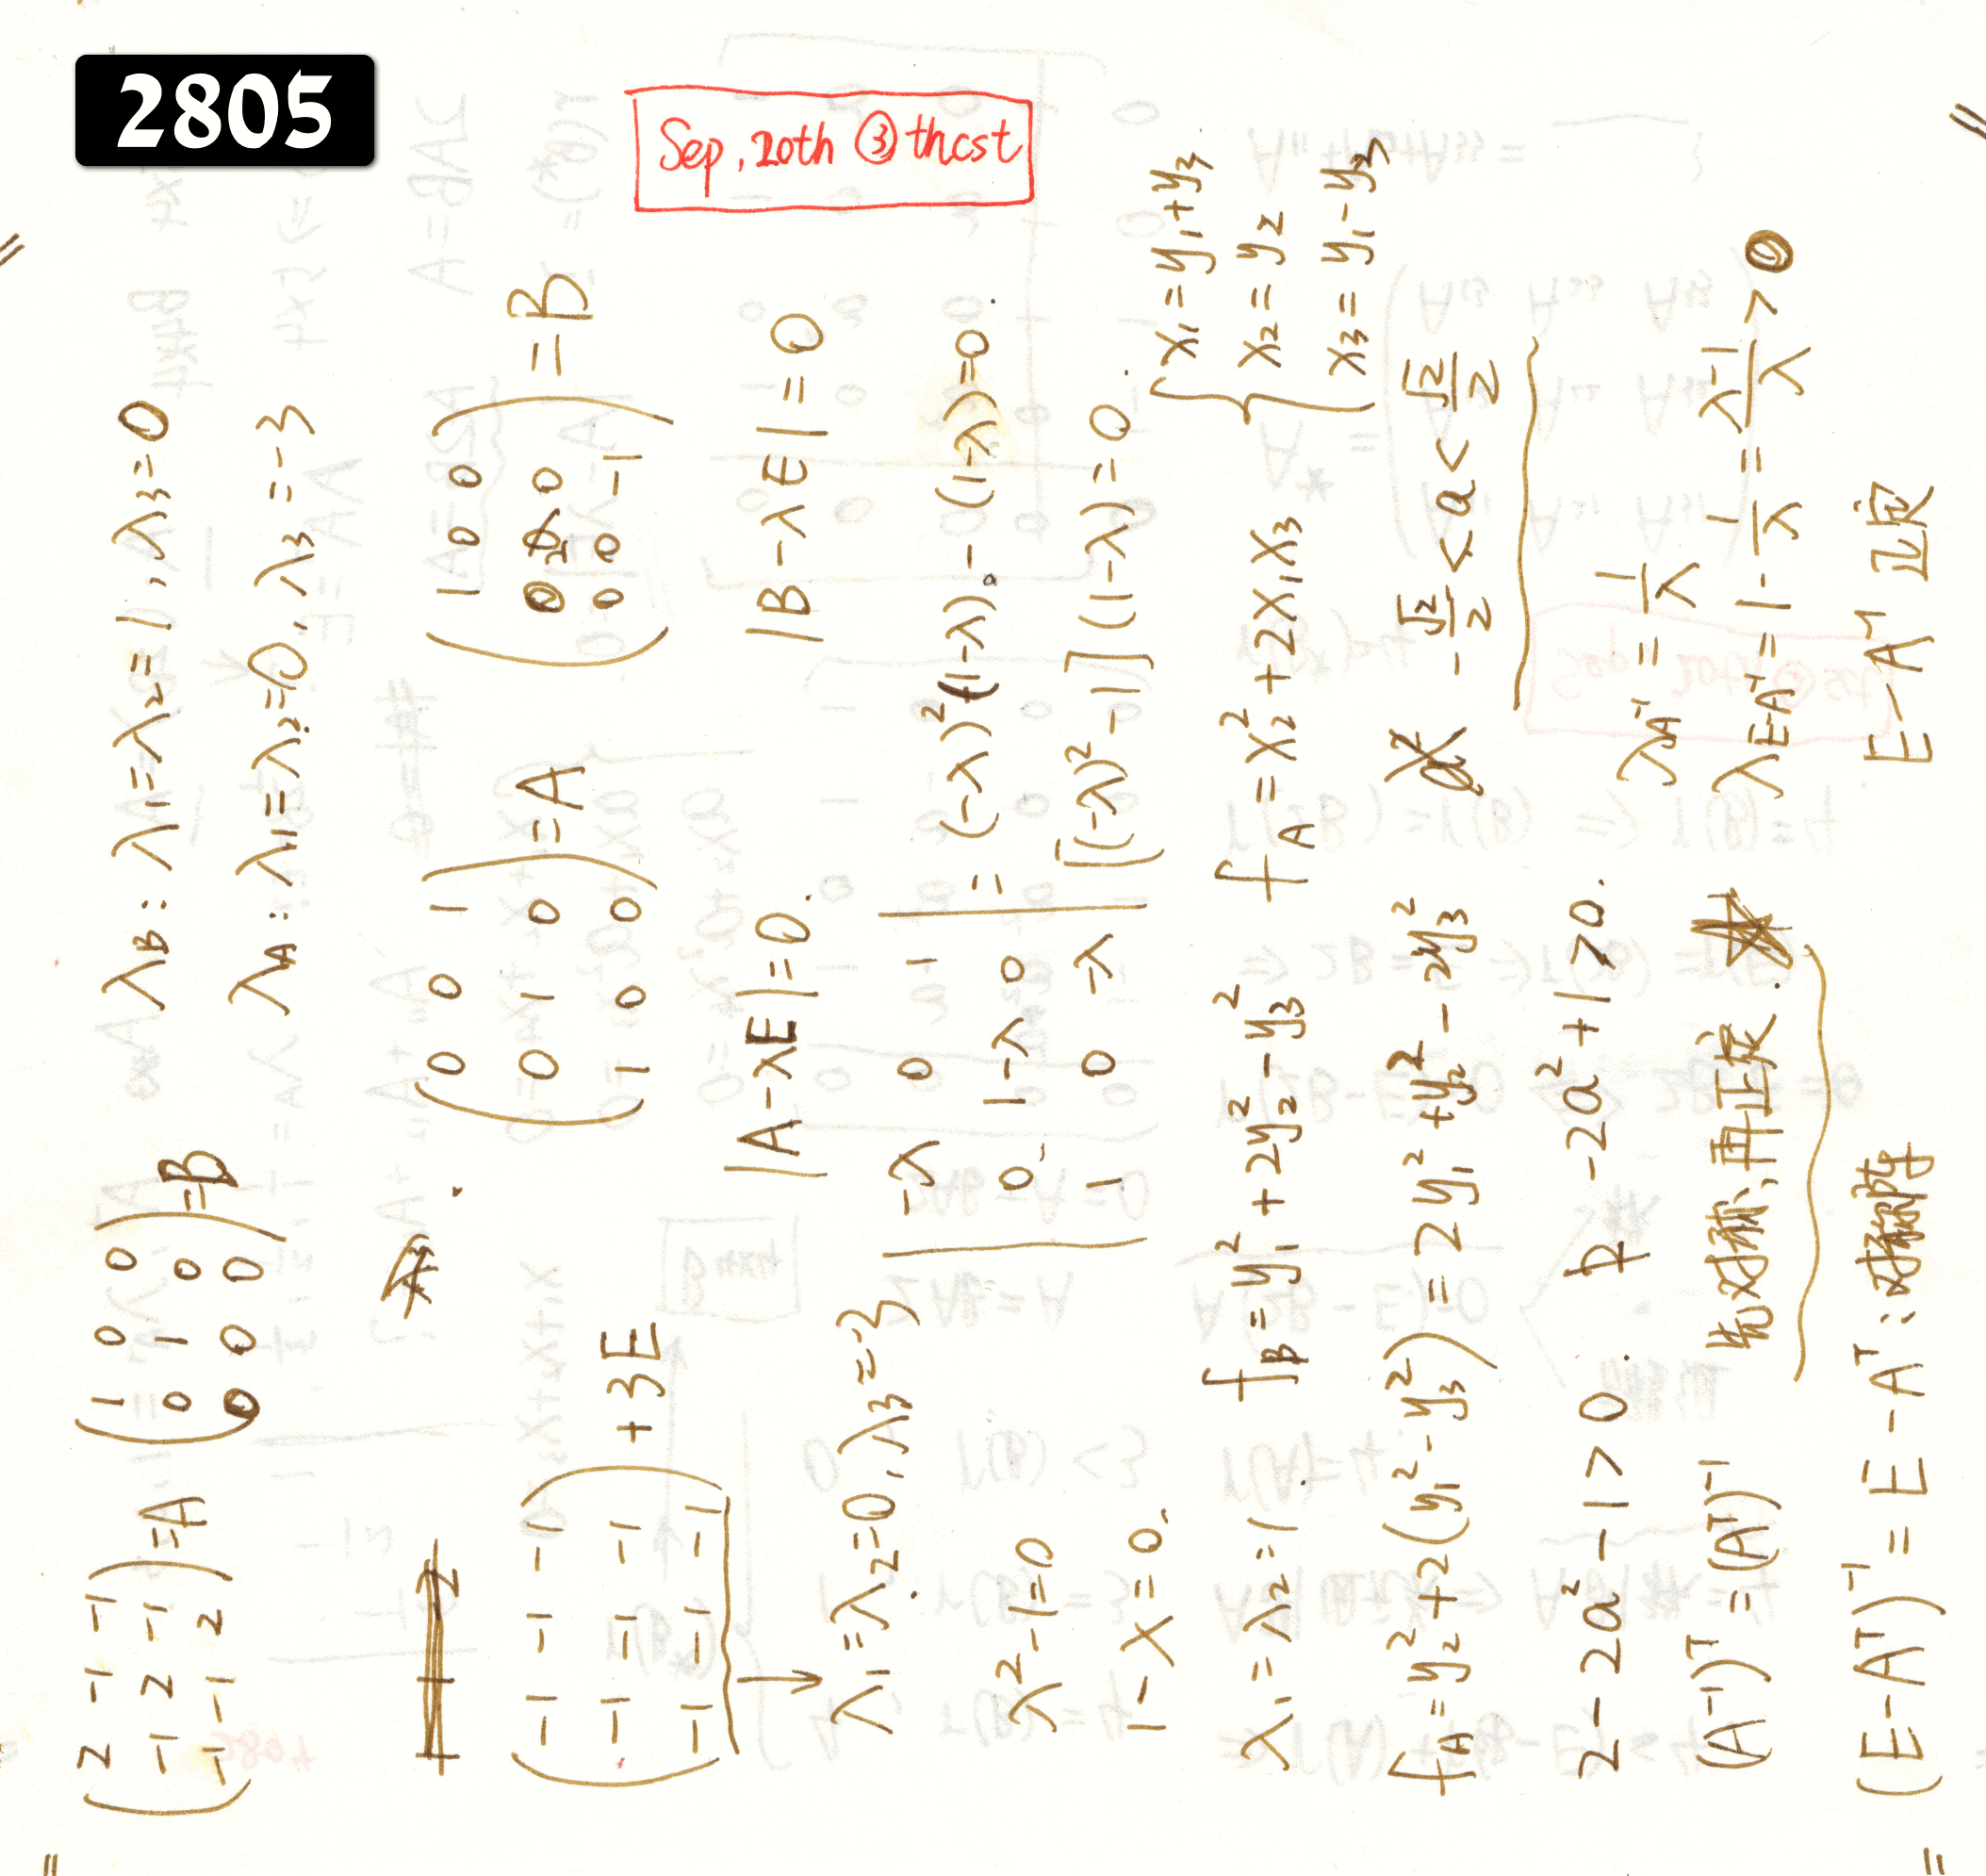 2805
Sep, 20th ③ thcst
( 2 -1 -1
-1 2 -1
-1 -1 2 ) = A
( 1 0 0
0 1 0
0 0 0 ) = B
λB : λ1 = λ2 = 1, λ3 = 0
λA : λ1 = λ2 = 0, λ3 = -3
( -1 -1 -1
-1 -1 -1
-1 -1 -1 ) + 3E
( 0 0 1
0 1 0
1 0 0 ) = A
( 1 0 0
0 2 0
0 0 -1 ) = B
λ1 = λ2 = 0, λ3 = -3
|A - λE| = 0.
|B - λE| = 0
λ² - 1 = 0
1 - λ = 0.
| -λ 0 1
0 1-λ 0
1 0 -λ | = (-λ)²(1-λ) - (1-λ) = 0.
[(-λ)² - 1](1-λ) = 0.
λ1 = λ2 = 1.
fB = y1² + 2y2² - y3²
fA = x2² + 2x1x3
{ x1 = y1 + y3
x2 = y2
x3 = y1 - y3
fA = y2² + 2(y1² - y3²) = 2y1² + y2² - 2y3²
-√2/2 < a < √2/2
2 - 2a² - 1 > 0.
-2a² + 1 > 0.
(A⁻¹)ᵀ = (Aᵀ)⁻¹
先对称, 再正定.
λA⁻¹ = 1/λ
λE-A⁻¹ = 1 - 1/λ = λ-1/λ > 0
(E - A⁻¹)ᵀ = E - Aᵀ : 对称阵
E - A⁻¹ 正定